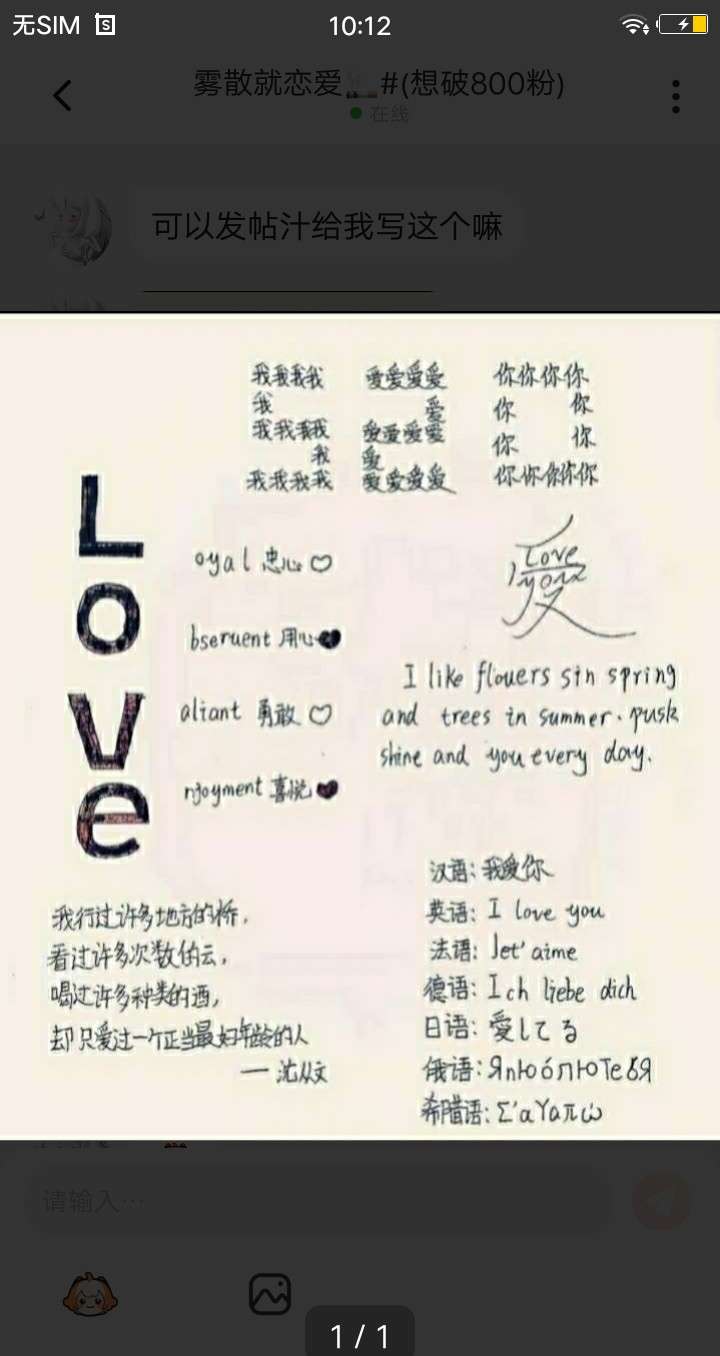 无SIM
10:12
雾散就恋爱 #(想破800粉)
在线
可以发帖汁给我写这个嘛
我我我我 爱爱爱爱 你你你你
我 爱 你 你
我我我我 爱爱爱爱 你 你
我 爱
我我我我 爱爱爱爱 你你你你你
Love
oyal 忠心
bseruent 用心
aliant 勇敢
njoyment 喜悦
Love
you
爱
I like flouers sin spring
and trees in summer. pusk
shine and you every day.
我行过许多地方的桥,
看过许多次数的云,
喝过许多种类的酒,
却只爱过一个正当最好年龄的人
—沈从文
汉语:我爱你
英语:I love you
法语:Jet'aime
德语:Ich liebe dich
日语:愛してる
俄语:ЯпюблюТебЯ
希腊语:Σ'αγαπώ
请输入…
1 / 1